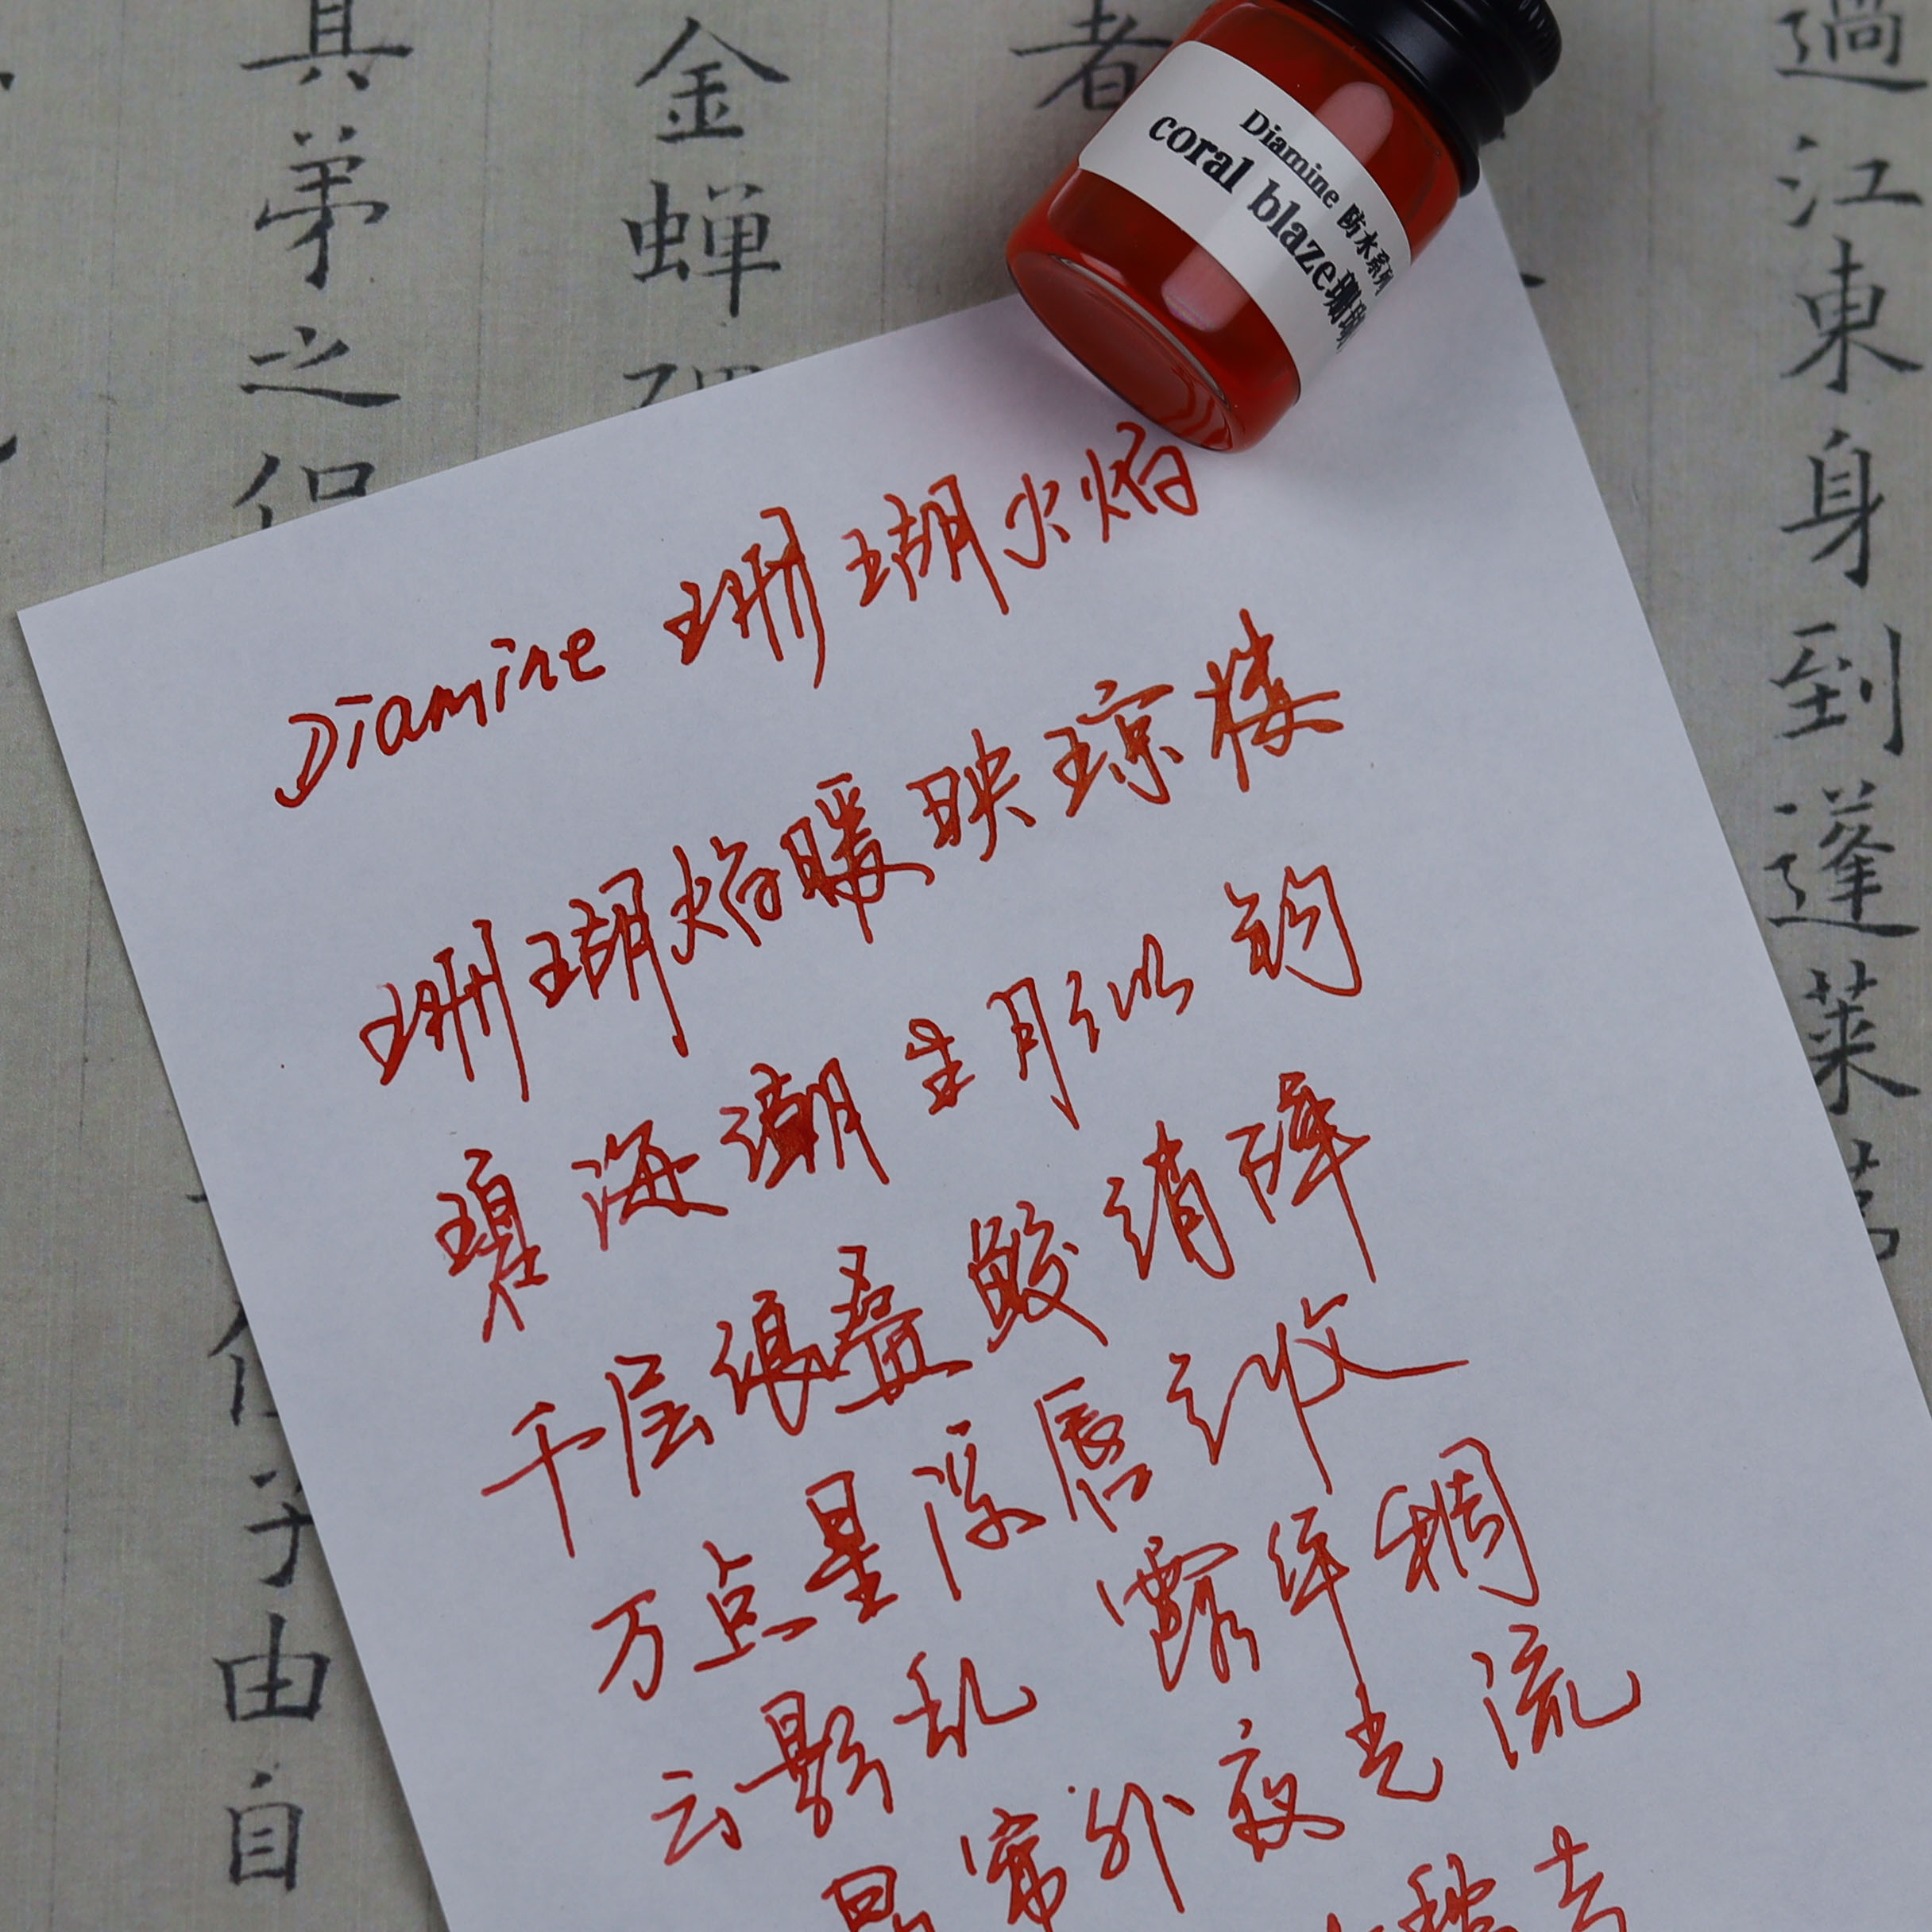 Diamine 防水系列
coral blaze珊瑚
Diamine 珊瑚火焰
珊瑚焰暖映琼楼
碧海潮生月似钩
千层浪叠鲛绡障
万点星浮唇印收
云影乱 露华稠
晶帘外夜光流
去
過江東身到蓬萊
者
金蟬
具弟之侶
子由自